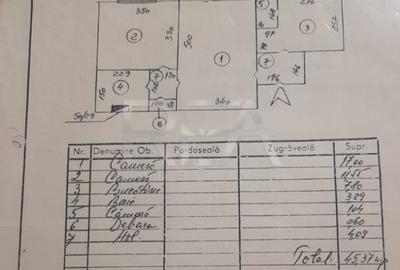 350
5
276
2
330
500
3
257
97
1
7
229
7
120
4
150
196
146
120
340
6
Nr. Denumire Ob. Pardoseală Zugrăveală Supr.
1 Cameră 17,00
2 Cameră 11,55
3 Bucătărie 7,80
4 Baie 3,29
5 Cămară 1,04
6 Debara 0,60
7 Hol 4,09
Total: 45,37 mp